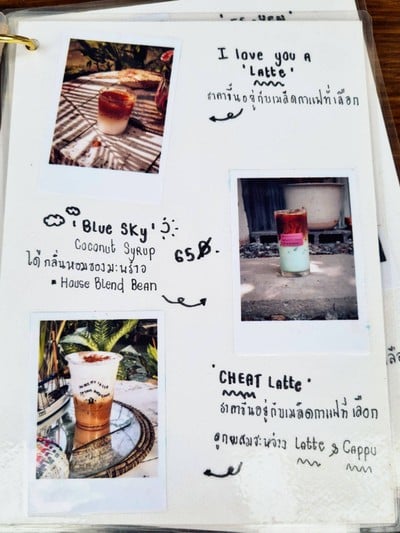 I love you A
'Latte'
ราคาขึ้นอยู่กับเมล็ดกาแฟที่เลือก
'BLUE SKY'
Coconut Syrup
65฿.
ได้กลิ่นหอมของมะพร้าว
House Blend Bean
"CHEAT Latte"
ราคาขึ้นอยู่กับเมล็ดกาแฟที่เลือก
ลูกผสมระหว่าง Latte & Cappu